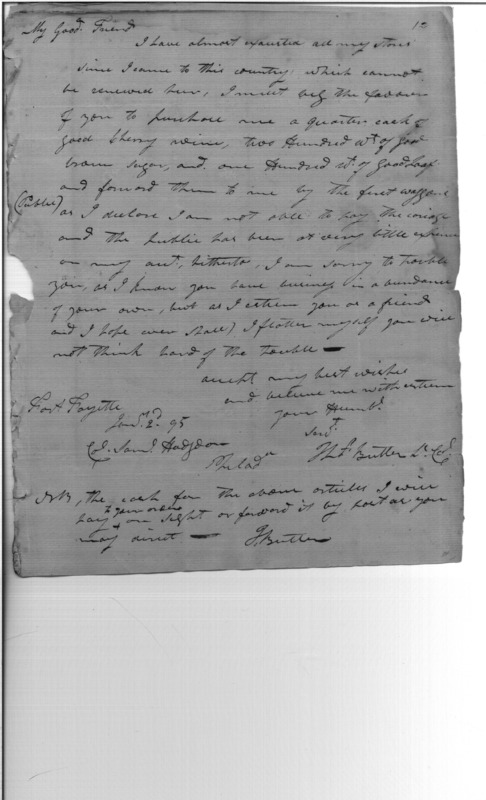 12
My Good Friend
I have almost exausted all my stores
since I came to this country, which cannot
be renewed here, I must beg the favour
of you to purchase me a quarter cask of
good Sherry wine, two Hundred wt. of good
brown sugar, and one Hundred wt. of good loaf
and forward them to me by the first waggons
(Public) as I declare I am not able to pay the carriage
and the public has been at very little expence
on my act. hitherto, I am sorry to trouble
you, as I know you have business in abundance
of your own, but as I esteem you as a friend
and I hope ever shall) I flatter myself you will
not think hard of the trouble —
my best wishes
and believe me with esteem
your Humbl.
Servt.
Fort Fayette
Jany. 2d. 95
Col. Saml. Hodgdon
Philada
Thos. Butler Lt. Col.
NB, the cash for the above articles I will
pay to your order on sight or forward it by post as you
may direct —
T. Butler